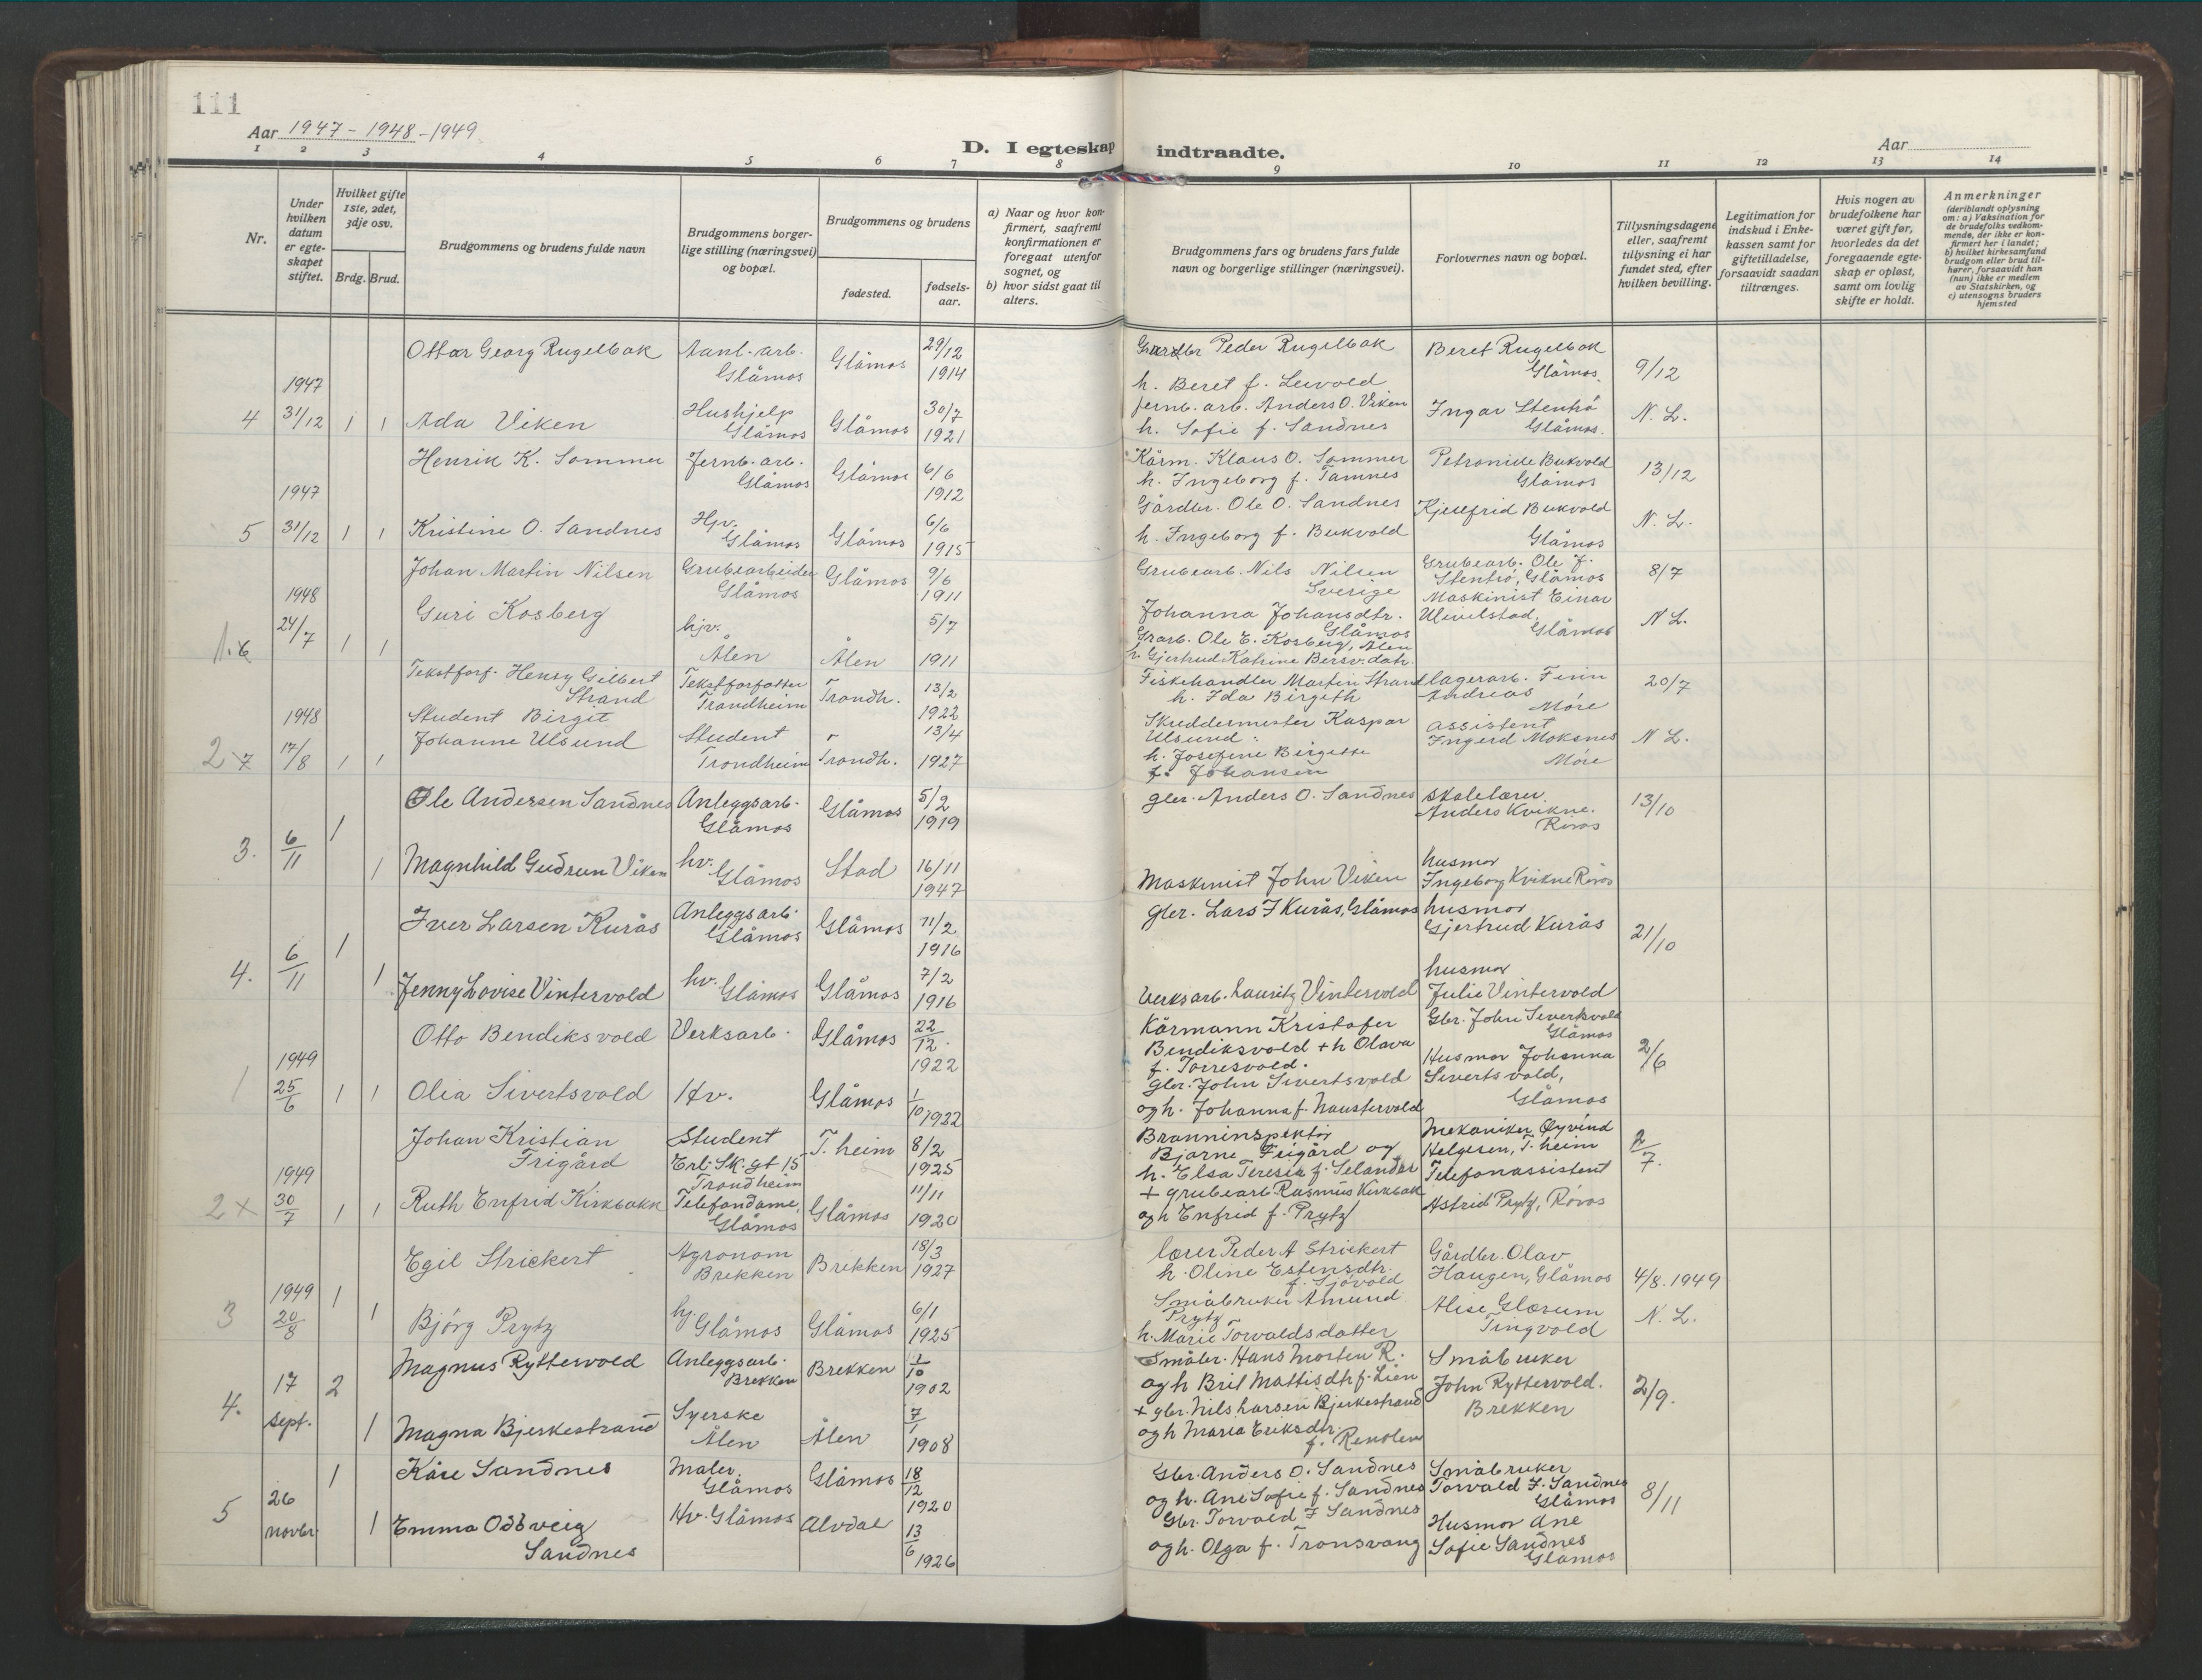 111
Aar 1947 - 1948 - 1949
D. I egteskap indtraadte.
Aar
1 2 3 4 5 6 7 8 9 10 11 12 13 14
Nr.
Under hvilken datum er egteskapet stiftet.
Hvilket gifte 1ste, 2det, 3dje osv.
Brdg. Brud.
Brudgommens og brudens fulde navn
Brudgommens borgerlige stilling (næringsvei) og bopæl.
Brudgommens og brudens
fødested.
fødselsaar.
a) Naar og hvor konfirmert, saafremt konfirmationen er foregaat utenfor sognet, og
b) hvor sidst gaat til alters.
Brudgommens fars og brudens fars fulde navn og borgerlige stillinger (næringsvei).
Forlovernes navn og bopæl.
Tillysningsdagene eller, saafremt tillysning ei har fundet sted, efter hvilken bevilling.
Legitimation for indskud i Enkekassen samt for giftetilladelse, forsaavidt saadan tiltrænges.
Hvis nogen av brudefolkene har været gift før, hvorledes da det foregaaende egteskap er opløst, samt om lovlig skifte er holdt.
Anmerkninger
(deriblandt oplysning om: a) Vaksination for de brudefolks vedkommende, der ikke er konfirmert her i landet; b) hvilket kirkesamfund brudgom eller brud tilhører, forsaavidt han (hun) ikke er medlem av Statskirken, og c) utensogns bruders hjemsted
Ottar Georg Rugelbak Aanl.-arb. Glåmos Glåmos 29/12 1914 Gardbr Peder Rugelbak h. Beret f. Leivold Beret Rugelbak Glåmos. 9/12
4 1947 31/12 1 1 Ada Viken Hushjelp Glåmos Glåmos 30/7 1921 Jernb. arb. Anders O. Viken h. Sofie f. Sandnes Ingar Stenhö Glåmos. N. L.
Henrik K. Sommer Jernb.-arb. Glåmos Glåmos 6/6 1912 Kårm. Klaus O. Sommer h. Ingeborg f. Tamnes Petronille Bukvold Glåmos 13/12
5 1947 31/12 1 1 Kristine O. Sandnes Hjv. Glåmos Glåmos 6/6 1915 Gårdbr. Ole O. Sandnes h. Ingeborg f. Bukvold Kjellfrid Bukvold Glåmos N. L.
Johan Martin Nilsen Grubearbeider Glåmos Glåmos 9/6 1911 Grubearb. Nils Nilsen Sverige Johanna Johansdtr. Glåmos Grubearb. Ole J. Stenhö, Glåmos 8/7
1.6 1948 24/7 1 1 Guri Kosberg hjv. Ålen Ålen 5/7 1911 Grarb. Ole E. Kosberg, Ålen h. Gjertrud Katrine Bersv.datr. Maskinist Einar Ulvilstad, Glåmos N L.
Tekstforf. Henry Gilbert Strand Tekstforfatter Trondheim Trondh. 13/2 1922 Fiskehandler Martin Strand h. Ida Birgith lagerarb. Finn Andreas Möre 20/7
2 x 7 1948 17/8 1 1 Student Birgit Johanne Ulsund Student Trondheim Trondh. 13/4 1927 Skreddermester Kaspar Ulsund h. Josefine Birgitte f. Johansen assistent Ingerd Moksnes Möre N L.
Ole Andersen Sandnes Anleggsarb. Glåmos Glåmos 5/2 1919 gbr. Anders O. Sandnes skolelærer Anders Kvikne. Röros 13/10
3. 6/11 1 1 Magnhild Gudrun Viken hv. Glåmos Stod 16/11 1947 Maskinist John Viken husmor Ingeborg Kvikne Röros
Iver Larsen Kurås Anleggsarb. Glåmos Glåmos 11/2 1916 gbr. Lars I Kurås, Glåmos husmor Gjertrud Kurås 21/10
4. 6/11 1 1 Jenny Lovise Vintervold hv. Glåmos Glåmos 7/2 1916 Verksarb. Lauritz Vintervold husmor Julie Vintervold
Otto Bendiksvold Verksarb. Glåmos 22/12. 1922 Körmann Kristofer Bendiksvold + h Olava f. Torresvold. Gbr. John Sivertsvold Glåmos 2/6
1 1949 25/6 1 1 Olia Sivertsvold Hv. Glåmos 1/10 1922 gbr. John Sivertsvold og h. Johanna f. Haustervold Husmor Johanna Sivertsvold, Glåmos
Johan Kristian Frigård Student Erl. Sk. gt 15 Trondheim T.heim 8/2 1925 Branninspektör Bjarne Frigård og h. Elsa Teresia f. Selander Mekaniker Øyvind Helgesen, T.heim 2/7.
2 x 1949 30/7 1 1 Ruth Enfrid Kirkbakk Telefondame, Glåmos Glåmos 11/11 1920 + grubearb Rasmus Kirkbak og h Enfrid f. Prytz Telefonassistent Astrid Prytz, Röros
Egil Strickert Agronom Brekken Brekken 18/3 1927 lærer Peder A Strickert h. Oline Estensdtr. f. Sjövold Gårdbr. Olav Haugen, Glåmos 4/8. 1949
3 1949 20/8 1 1 Bjørg Prytz hj Glåmos Glåmos 6/1 1925 Småbruker Amund Prytz h. Marie Torvaldsdatter Alise Glærum Tingvold N. L.
Magnus Ryttervold Anleggsarb. Brekken Brekken 1/10 1902 Småbr. Hans Morten R. og h Brit Mattisdtr f. Lien Småbruker John Ryttervold. Brekken 2/9.
4. 17 sept. 2 1 Magna Bjerkestrand Syerske Ålen Ålen 7/1 1908 + gbr. Nils Larsen Bjerkestrand og h Maria Eriksdtr. f. Renolen
Kåre Sandnes Maler, Glåmos Glåmos 18/12 1920 Gbr. Anders O. Sandnes og h. Ane Sofie f. Sandnes Småbruker Torvald I. Sandnes Glåmos 8/11
5 26 novbr 1 1 Emma Oddveig Sandnes Hv. Glåmos Alvdal 13/6 1926 Gbr. Torvald I Sandnes og h. Olga f. Tronsvang Husmor Ane Sofie Sandnes Glåmos